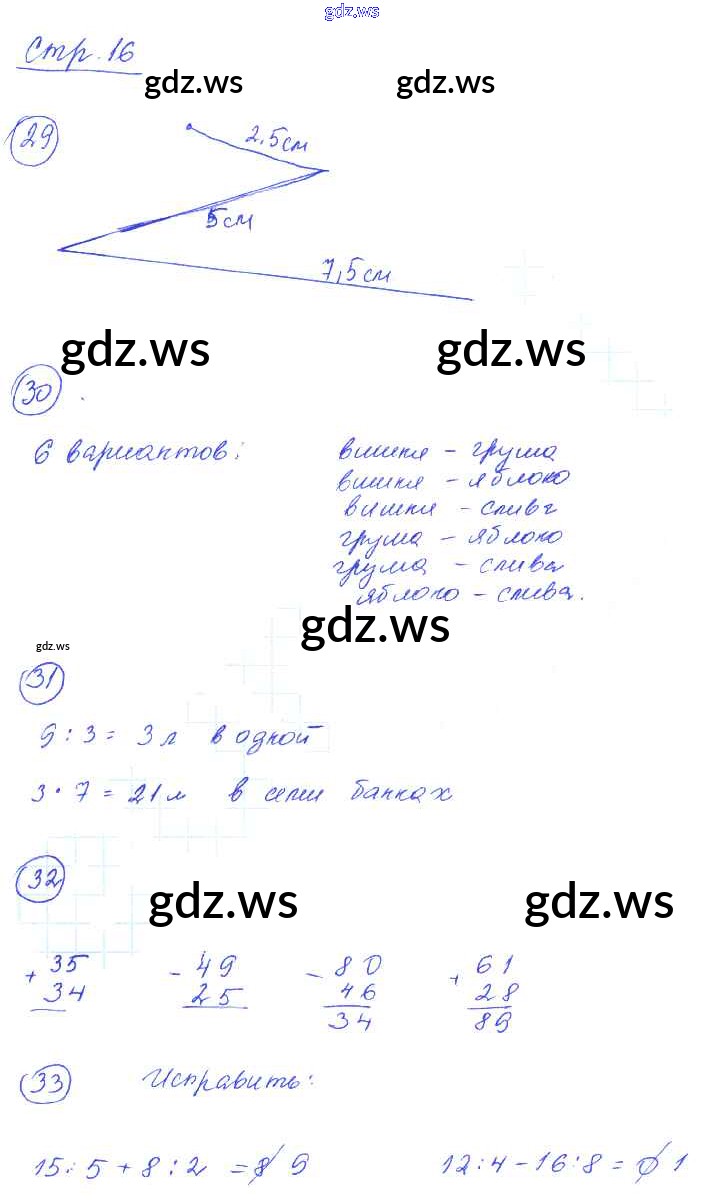 gdz.ws
Стр. 16
gdz.ws gdz.ws
29
2,5см
5см
7,5см
gdz.ws gdz.ws
30
6 вариантов: вишня - груша
вишня - яблоко
вишня - слива
груша - яблоко
груша - слива
яблоко - слива.
gdz.ws
gdz.ws
31
9 : 3 = 3 л в одной
3 · 7 = 21 л в семи банках
32
gdz.ws gdz.ws
+ 35 - 49 - 80 + 61
34 25 46 28
34 89
33 Исправить:
15 : 5 + 8 : 2 = 8 9 12 : 4 - 16 : 8 = 0 1